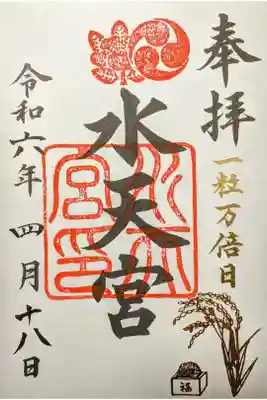 奉拝
一粒万倍日
水天宮
水天宮印
令和六年 四月 十八日
福